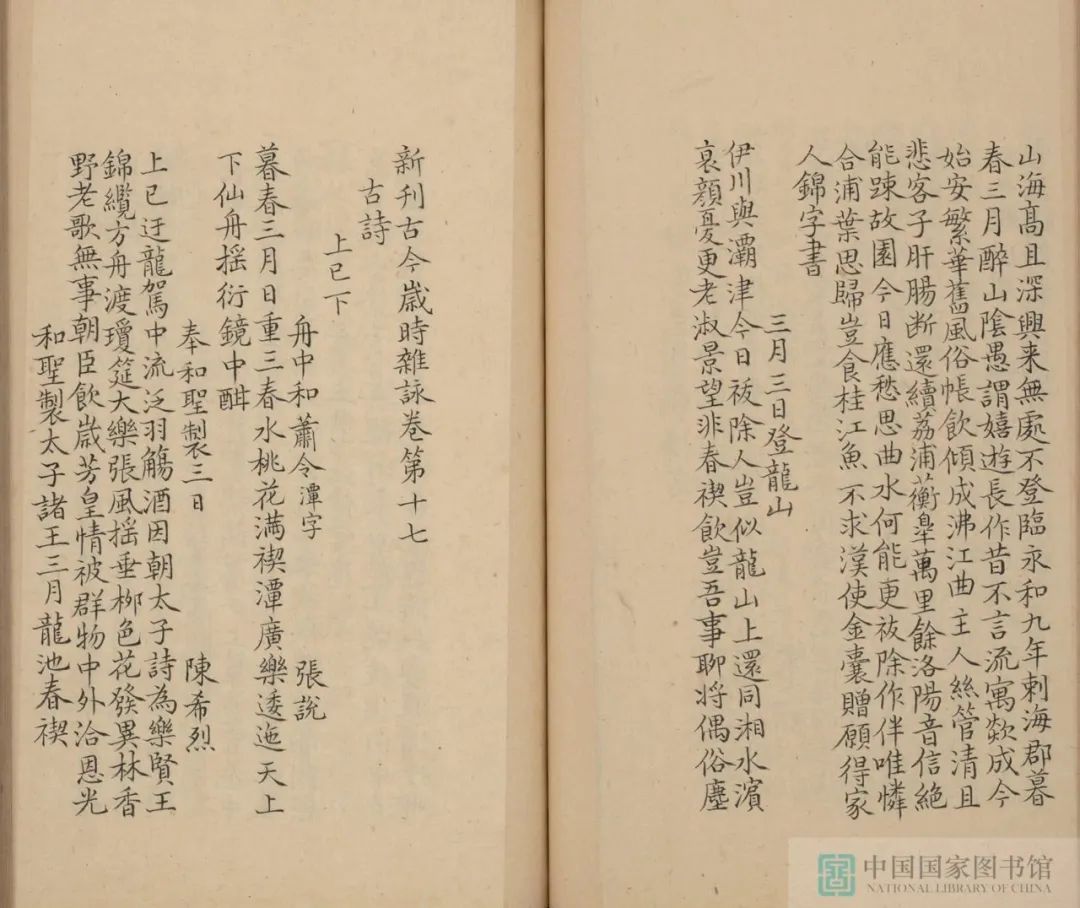 山海髙且深興来無處不登臨永和九年刺海郡暮
春三月醉山陰愚謂嬉遊長作昔不言流寓欻成今
始安繁華舊風俗帳飲傾成沸江曲主人絲管清且
悲客子肝腸断還續荔浦蘅臯萬里餘洛陽音信絶
能踈故園今日應愁思曲水何能更祓除作伴唯憐
合浦葉思歸豈食桂江魚不求漢使金囊贈願得家
人錦字書
三月三日登龍山
伊川與灞津今日祓除人豈似龍山上還同湘水濱
哀顔憂更老淑景望非春禊飲豈吾事聊将偶俗塵
新刊古今歳時雜詠卷第十七
古詩
上巳下
舟中和蕭令潭字 張説
暮春三月日重三春水桃花满禊潭廣樂逶迤天上
下仙舟揺衍鏡中酣
奉和聖製三日 陳希烈
上巳迂龍駕中流泛羽觴酒因朝太子詩為樂賢王
錦纜方舟渡瓊筵大樂張風揺垂栁色花發異林香
野老歌無事朝臣飲歳芳皇情被群物中外洽恩光
和聖製太子諸王三月龍池春禊
中国国家图书馆
NATIONAL LIBRARY OF CHINA